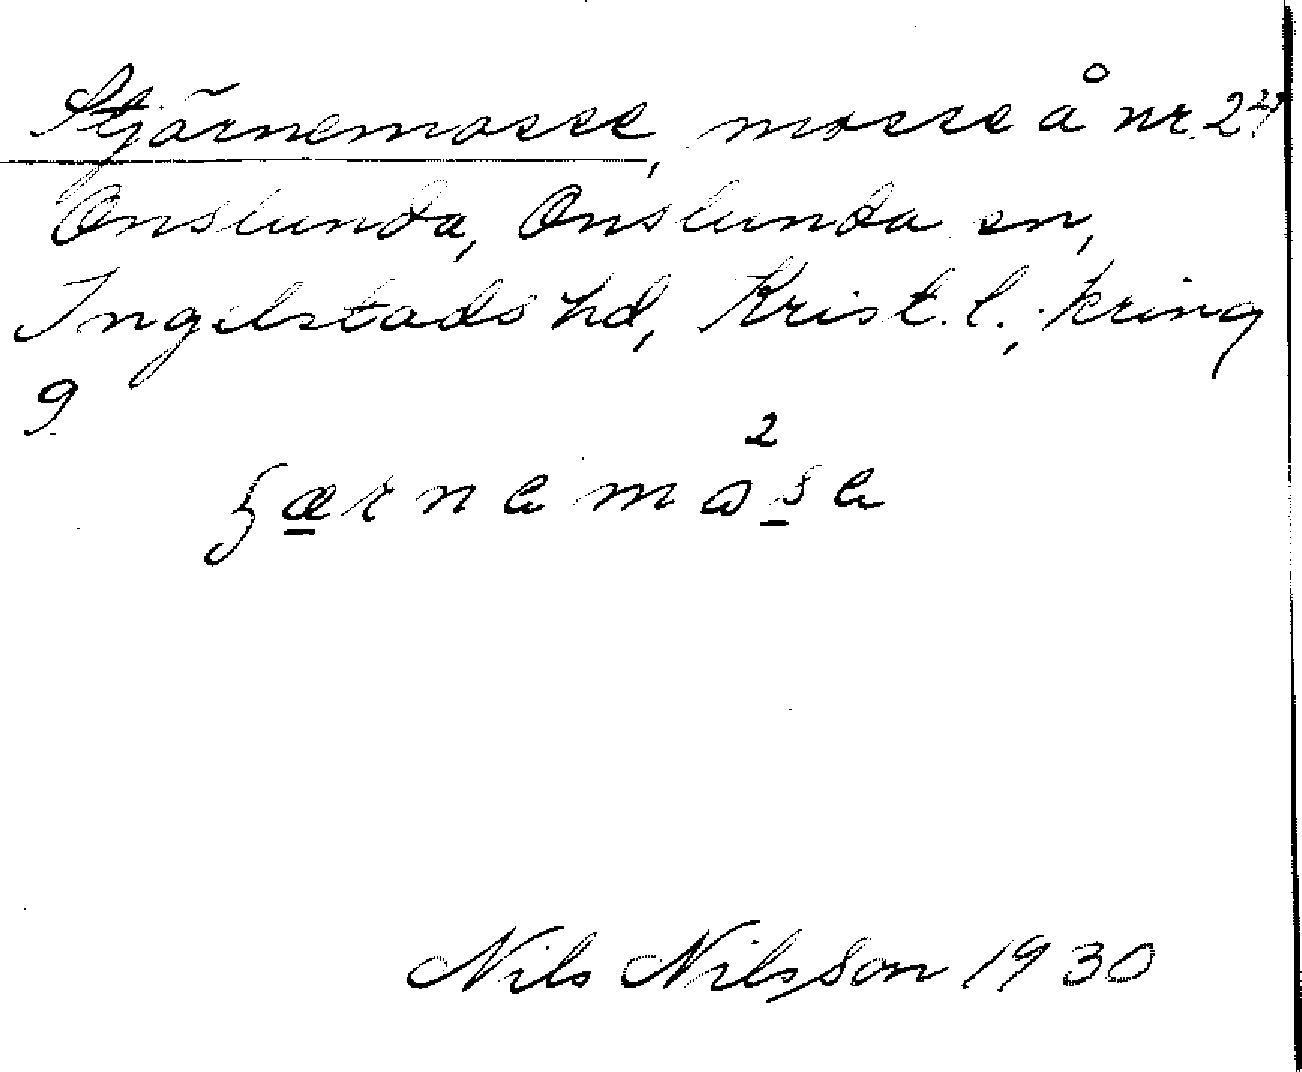 Stjärnemosse, mosse å nr 2²⁴
Onslunda, Onslunda sn,
Ingelstads hd, Krist. l., kring
9
ʂærnamosa
Nils Nilsson 1930